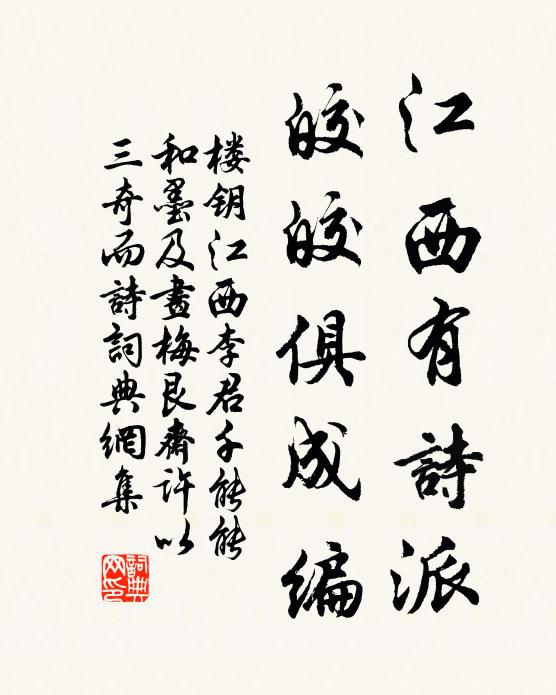 江西有詩派
皎皎俱成编
楼钥江西李君千能能
和墨及畫梅艮齋許以
三奇而詩詞典網集
詞典网印